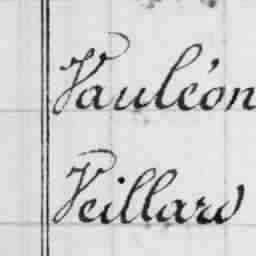 Vauléon
Veillard